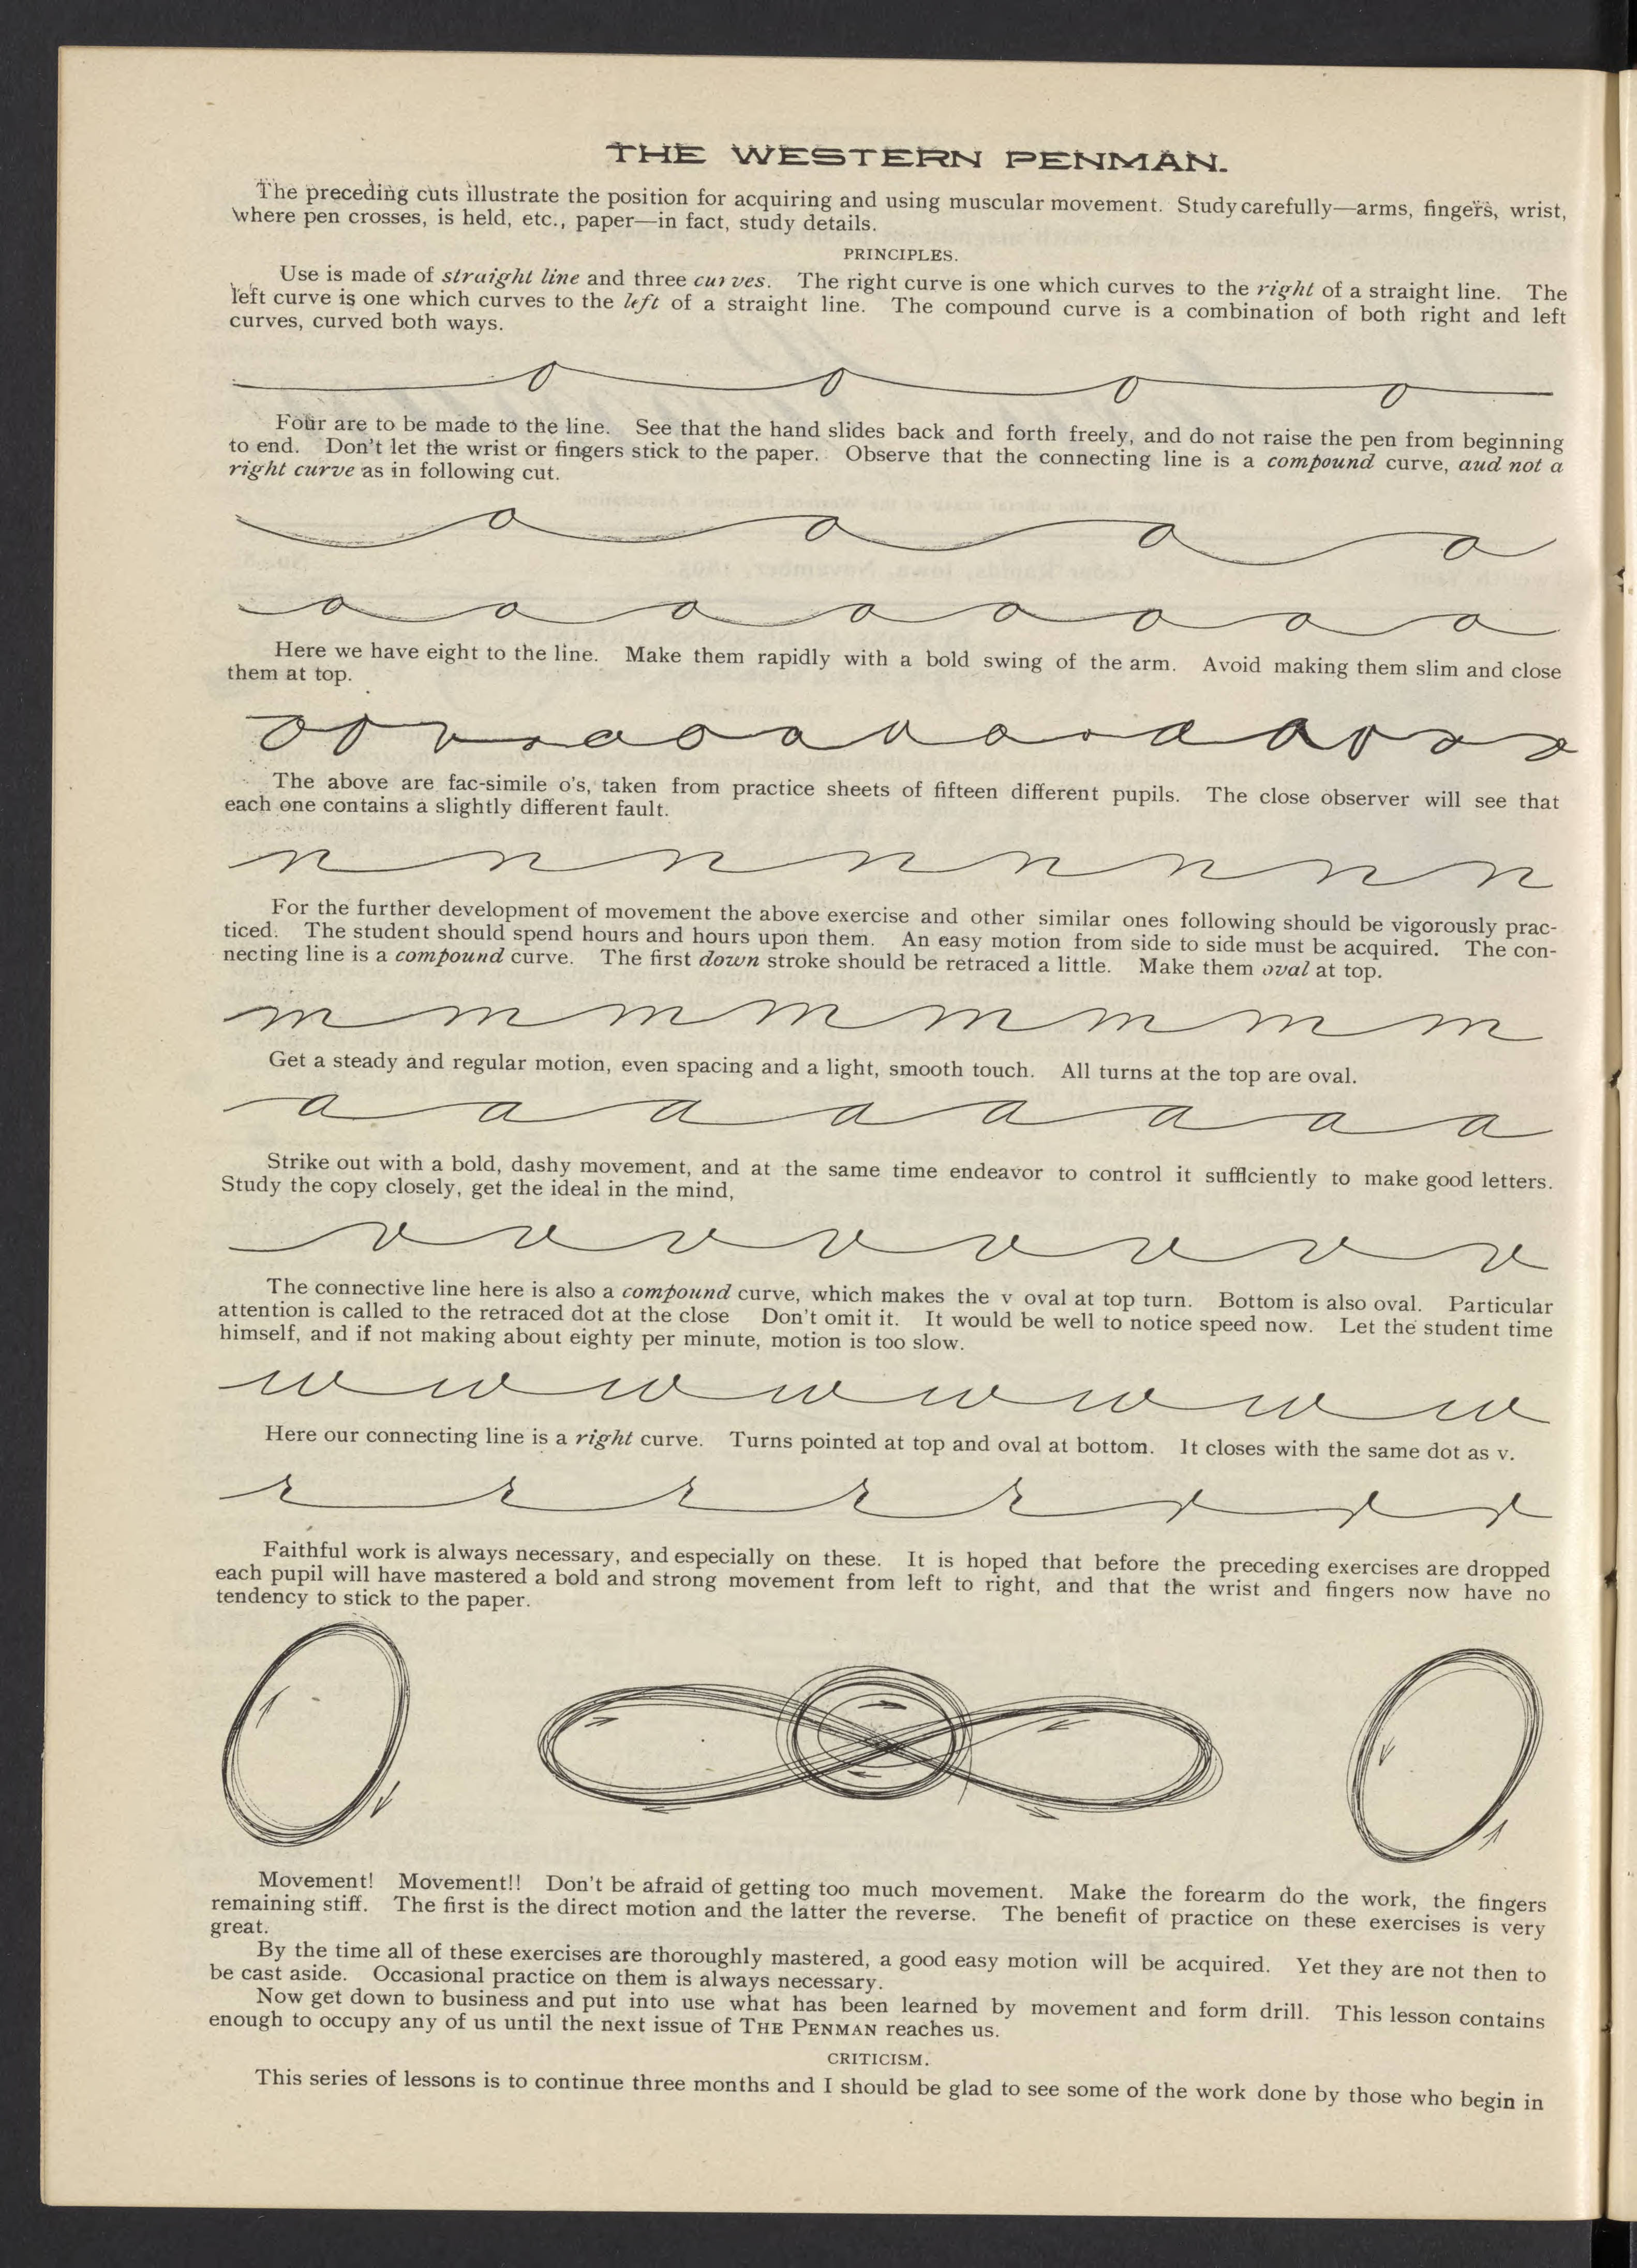 THE WESTERN PENMAN.
The preceding cuts illustrate the position for acquiring and using muscular movement. Study carefully—arms, fingers, wrist,
where pen crosses, is held, etc., paper—in fact, study details.
PRINCIPLES.
Use is made of straight line and three curves. The right curve is one which curves to the right of a straight line. The
left curve is one which curves to the left of a straight line. The compound curve is a combination of both right and left
curves, curved both ways.
o o o o
Four are to be made to the line. See that the hand slides back and forth freely, and do not raise the pen from beginning
to end. Don't let the wrist or fingers stick to the paper. Observe that the connecting line is a compound curve, aud not a
right curve as in following cut.
o o o o
o o o o o o o o
Here we have eight to the line. Make them rapidly with a bold swing of the arm. Avoid making them slim and close
them at top.
The above are fac-simile o's, taken from practice sheets of fifteen different pupils. The close observer will see that
each one contains a slightly different fault.
n n n n n n n n
For the further development of movement the above exercise and other similar ones following should be vigorously prac-
ticed. The student should spend hours and hours upon them. An easy motion from side to side must be acquired. The con-
necting line is a compound curve. The first down stroke should be retraced a little. Make them oval at top.
m m m m m m m m
Get a steady and regular motion, even spacing and a light, smooth touch. All turns at the top are oval.
a a a a a a a a
Strike out with a bold, dashy movement, and at the same time endeavor to control it sufficiently to make good letters.
Study the copy closely, get the ideal in the mind,
v v v v v v v v
The connective line here is also a compound curve, which makes the v oval at top turn. Bottom is also oval. Particular
attention is called to the retraced dot at the close Don't omit it. It would be well to notice speed now. Let the student time
himself, and if not making about eighty per minute, motion is too slow.
w w w w w w w w
Here our connecting line is a right curve. Turns pointed at top and oval at bottom. It closes with the same dot as v.
r r r r r r r r
Faithful work is always necessary, and especially on these. It is hoped that before the preceding exercises are dropped
each pupil will have mastered a bold and strong movement from left to right, and that the wrist and fingers now have no
tendency to stick to the paper.
Movement! Movement!! Don't be afraid of getting too much movement. Make the forearm do the work, the fingers
remaining stiff. The first is the direct motion and the latter the reverse. The benefit of practice on these exercises is very
great.
By the time all of these exercises are thoroughly mastered, a good easy motion will be acquired. Yet they are not then to
be cast aside. Occasional practice on them is always necessary.
Now get down to business and put into use what has been learned by movement and form drill. This lesson contains
enough to occupy any of us until the next issue of THE PENMAN reaches us.
CRITICISM.
This series of lessons is to continue three months and I should be glad to see some of the work done by those who begin in